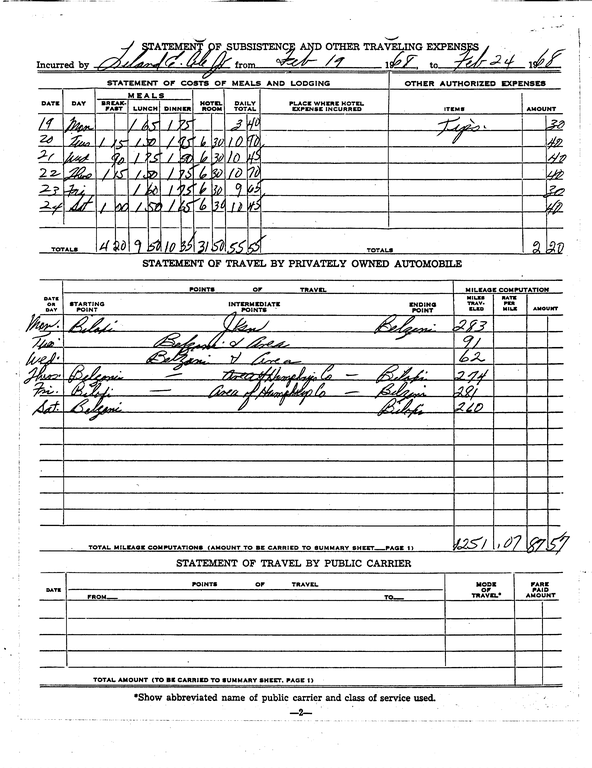 STATEMENT OF SUBSISTENCE AND OTHER TRAVELING EXPENSES
Incurred by Leland E. Cole Jr from Feb 19 1968 to Feb 24 1968
STATEMENT OF COSTS OF MEALS AND LODGING OTHER AUTHORIZED EXPENSES
MEALS
DATE DAY BREAKFAST LUNCH DINNER HOTEL ROOM DAILY TOTAL PLACE WHERE HOTEL EXPENSE INCURRED ITEMS AMOUNT
19 Mon 1 65 1 75 3 40 Tips. 30
20 Tues 1 15 1 50 1 95 6 30 10 90 40
21 Wed 90 1 75 1 50 6 30 10 45 40
22 Thos 1 15 1 50 1 75 6 30 10 70 40
23 Fri 1 60 1 75 6 30 9 65 30
24 Sat 1 00 1 50 1 65 6 30 10 45 40
TOTALS 4 20 9 50 10 35 31 50 55 55 TOTALS 2 20
STATEMENT OF TRAVEL BY PRIVATELY OWNED AUTOMOBILE
POINTS OF TRAVEL MILEAGE COMPUTATION
DATE OR DAY STARTING POINT INTERMEDIATE POINTS ENDING POINT MILES TRAVELED RATE PER MILE AMOUNT
Mon. Biloxi Jxn Belzoni 283
Tues. Belzoni & Area 91
Wed. Belzoni & Area 62
Thurs Belzoni — Area of Humphreys Co — Biloxi 274
Fri. Biloxi — Area of Humphreys Co — Belzoni 281
Sat. Belzoni Biloxi 260
TOTAL MILEAGE COMPUTATIONS (AMOUNT TO BE CARRIED TO SUMMARY SHEET—PAGE 1) 1251 .07 87 57
STATEMENT OF TRAVEL BY PUBLIC CARRIER
DATE POINTS OF TRAVEL MODE OF TRAVEL* FARE PAID AMOUNT
FROM— TO—
TOTAL AMOUNT (TO BE CARRIED TO SUMMARY SHEET. PAGE 1)
*Show abbreviated name of public carrier and class of service used.
—2—